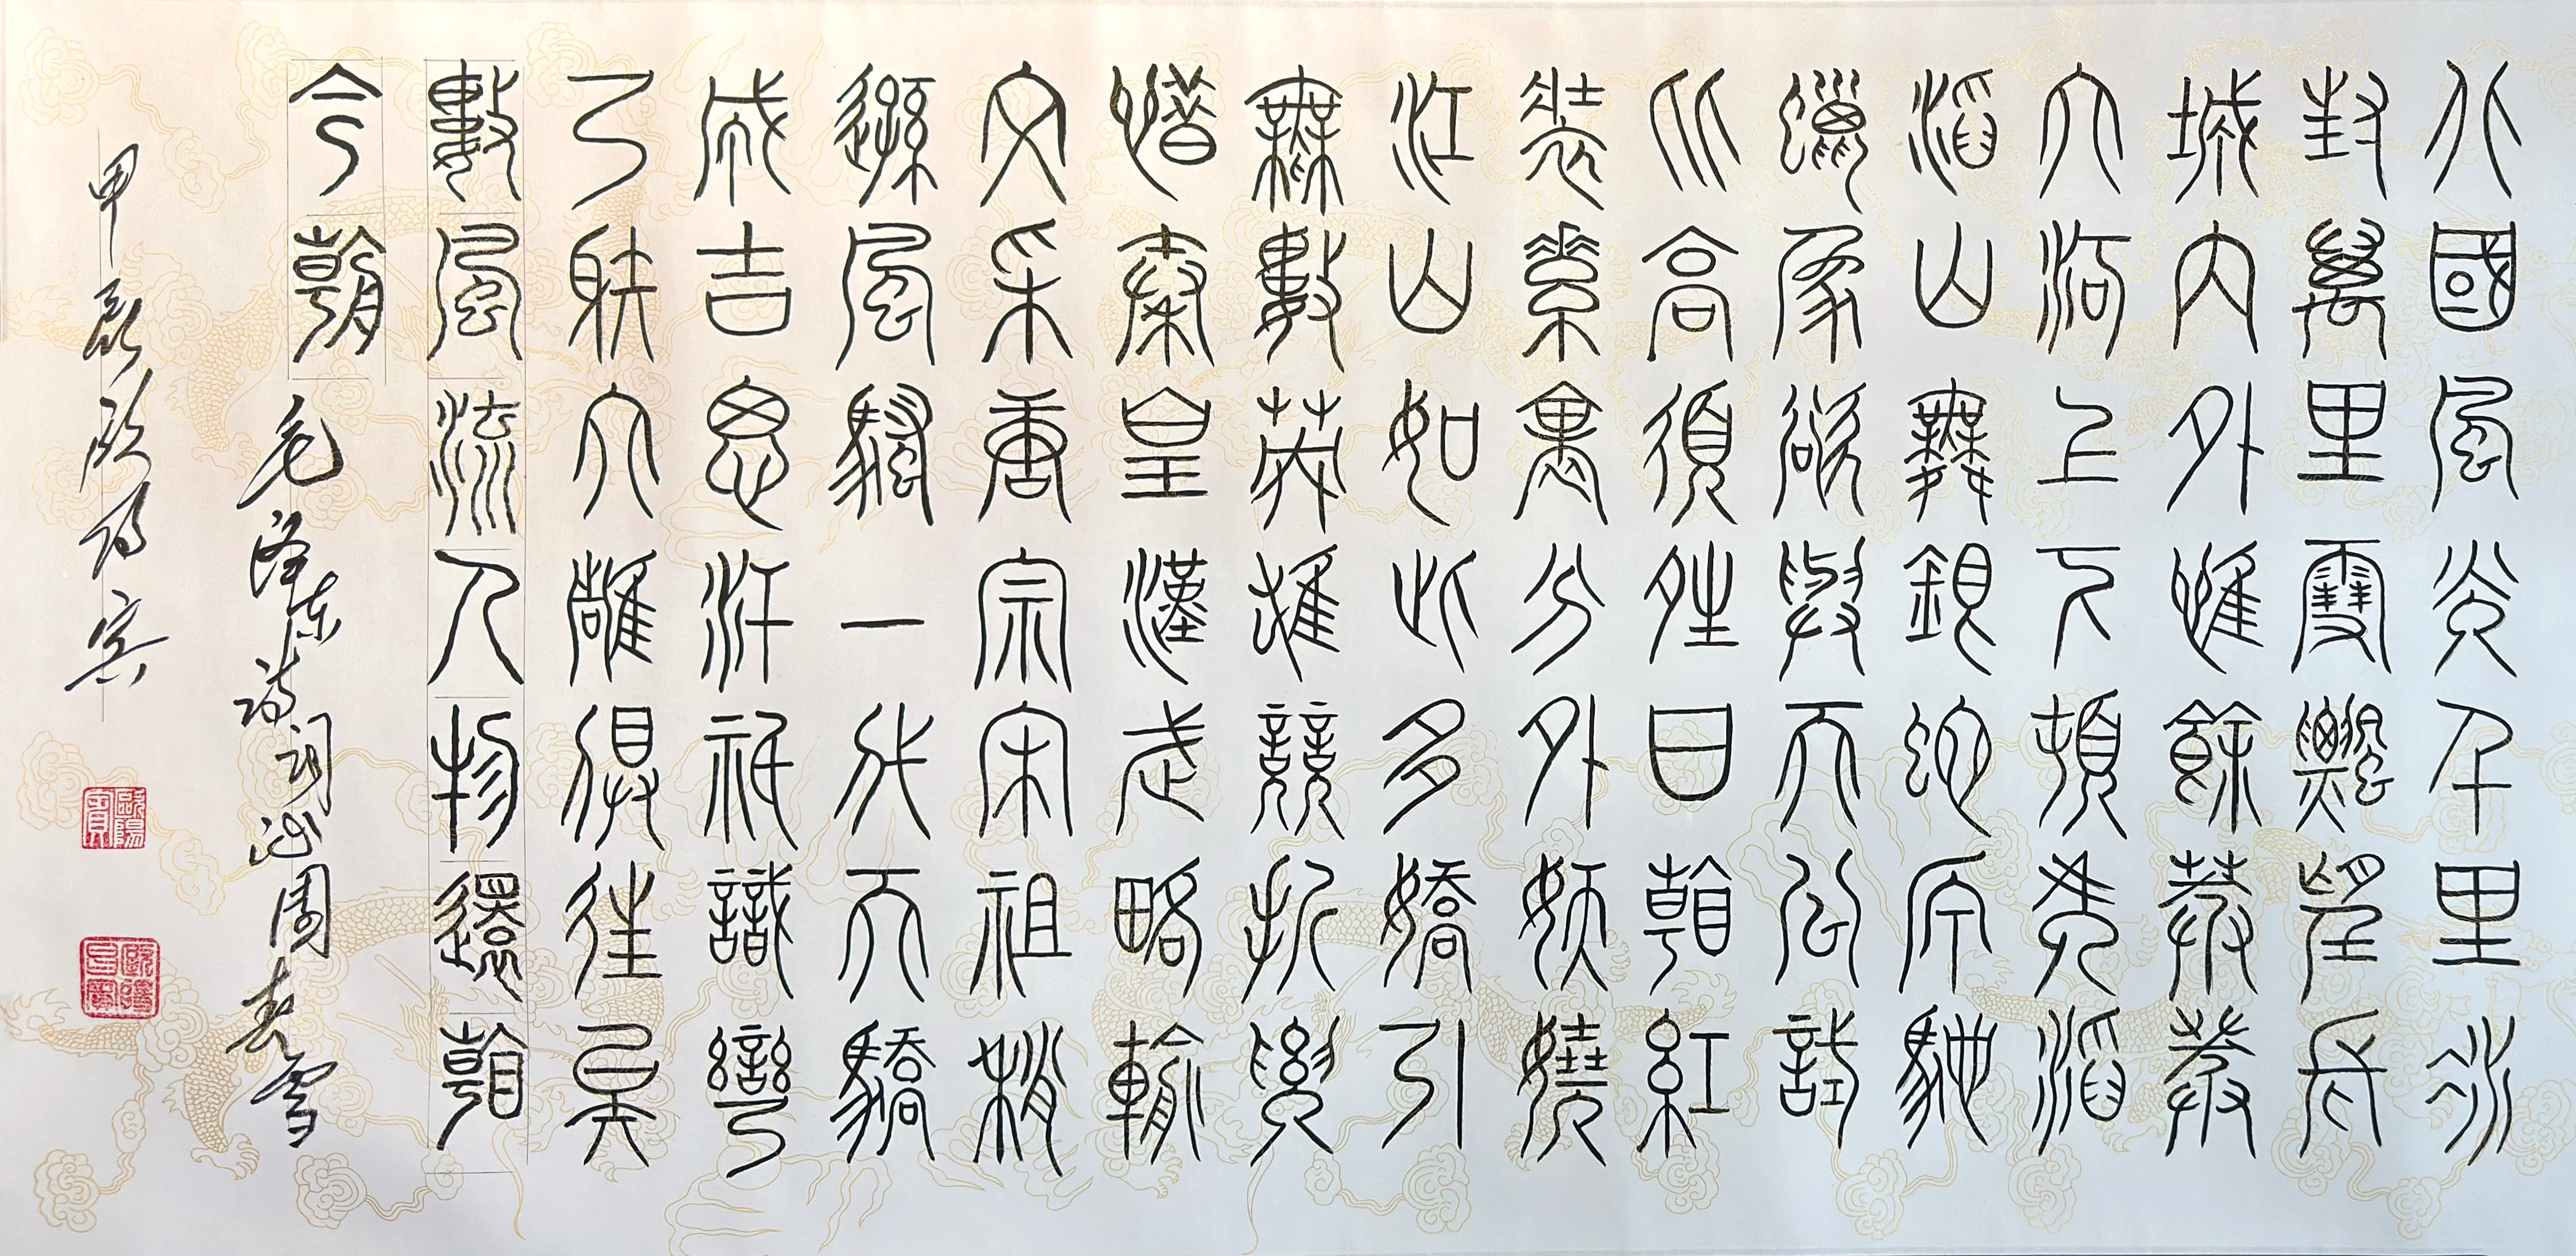 北國風光千里冰
封萬里雪飄望長
城內外惟餘莽莽
大河上下頓失滔
滔山舞銀蛇原馳
蠟象欲與天公試
比高須晴日看紅
裝素裹分外妖嬈
江山如此多嬌引
無數英雄競折腰
惜秦皇漢武略輸
文采唐宗宋祖稍
遜風騷一代天驕
成吉思汗祇識彎
弓射大雕俱往矣
數風流人物還看
今朝
毛泽东诗词沁園春雪
甲辰欧陽宾
歐陽賓